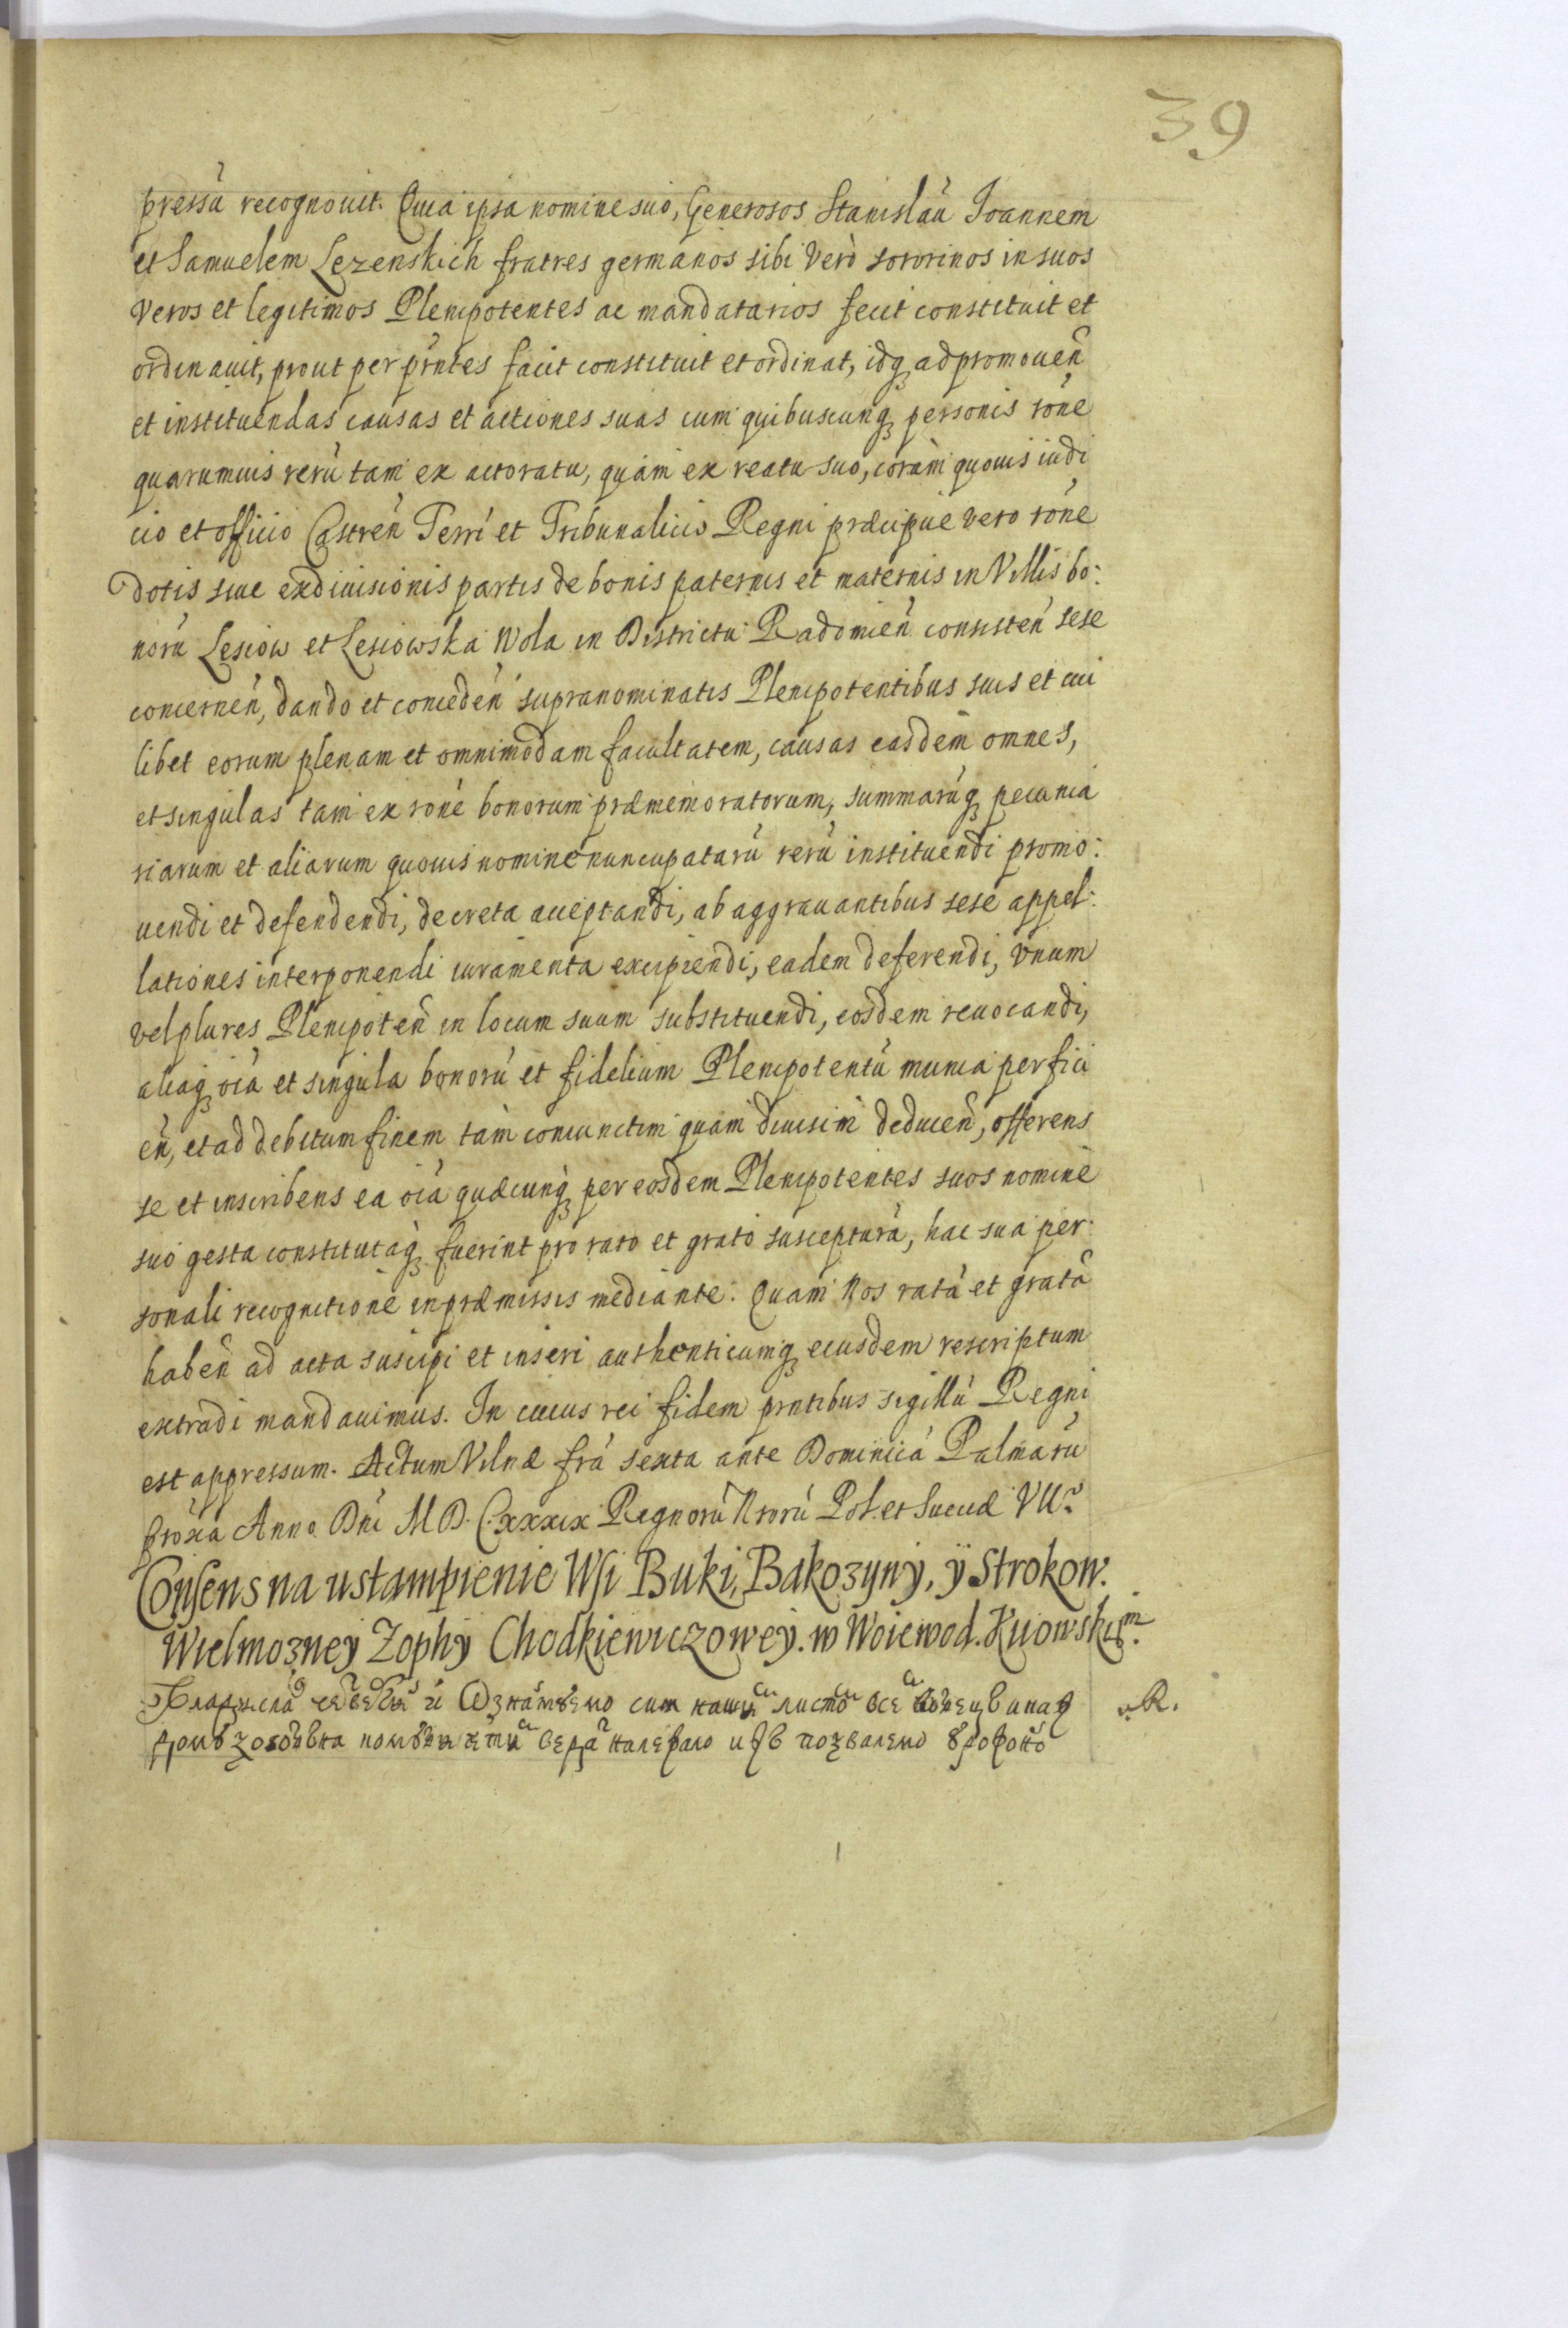 39
pressũ recognouit. Quia ipsa nomine suo, Generosos Stanislaũ Joannem
et Samuelem Lezenskich fratres germanos sibi vero sororinos in suos
veros et legitimos Plenipotentes ac mandatarios fecit constituit et
ordinauit, prout per pñtes facit constituit et ordinat, idq̃ ad promouen̄
et instituendas causas et actiones suas cum quibuscunq̃ personis rõne
quarumuis rerũ tam ex actoratu, quàm ex reatu suo, coràm quouis iudi
cio et officio Castren̄ Terrĩ et Tribunalicio Regni præcipue vero rõne
dotis siue exdiuisionis partis de bonis paternis et maternis in Villis bo:
norũ Lesiow et Lesiowska Wola in Districtu Radomien̄ consisten̄ sese
concernen̄, dando et conceden̄ supranominatis Plenipotentibus suis et cui
libet eorum plenam et omnimodam facultatem, causas easdem omnes,
et singulas tam ex rõne bonorum præmemoratorum, summarũq̃ pecunia
riarum et aliarum quouis nomine nuncupatarũ rerũ instituendi promo:
uendi et defendendi, decreta acceptandi, ab aggrauantibus sese appel:
lationes interponendi iuramenta excipiendi, eadem deferendi, vnum
vel plures Plenipoten̄ in locum suum substituendi, eosdem reuocandi,
aliaq̃ oĩa et singula bonorũ et fidelium Plenipotentũ munia perfici
en̄, et ad debitum finem tàm coniunctim quàm diuisim deducen̄, offerens
se et inscribens ea oĩa quæcunq̃ per eosdem Plenipotentes suos nomine
suo gesta constitutaq̃ fuerint pro rato et grato susceptura, hac sua per:
sonali recognitione in præmissis mediante. Quam Nos ratã et gratã
haben̄ ad acta suscipi et inseri authenticumq̃ eiusdem rescriptum
extradi mandauimus. In cuius rei fidem pñtibus sigillũ Regni
est appressum. Actum Vilnæ frã sexta ante Dominicã Palmarũ
proxã Anno Dñi M D.C.xxxix Regnorũ Nrorũ Pol. et Sueciæ VII°
Consens na ustąmpienie Wsi Buki, Bakozyny, ÿ Strokow.
Wielmozney Zophy Chodkiewiczowey. w Woiewod. Kiiowskim.
Владислав Ѡзнаймуемо сим нашим листом
R.
позваляемо